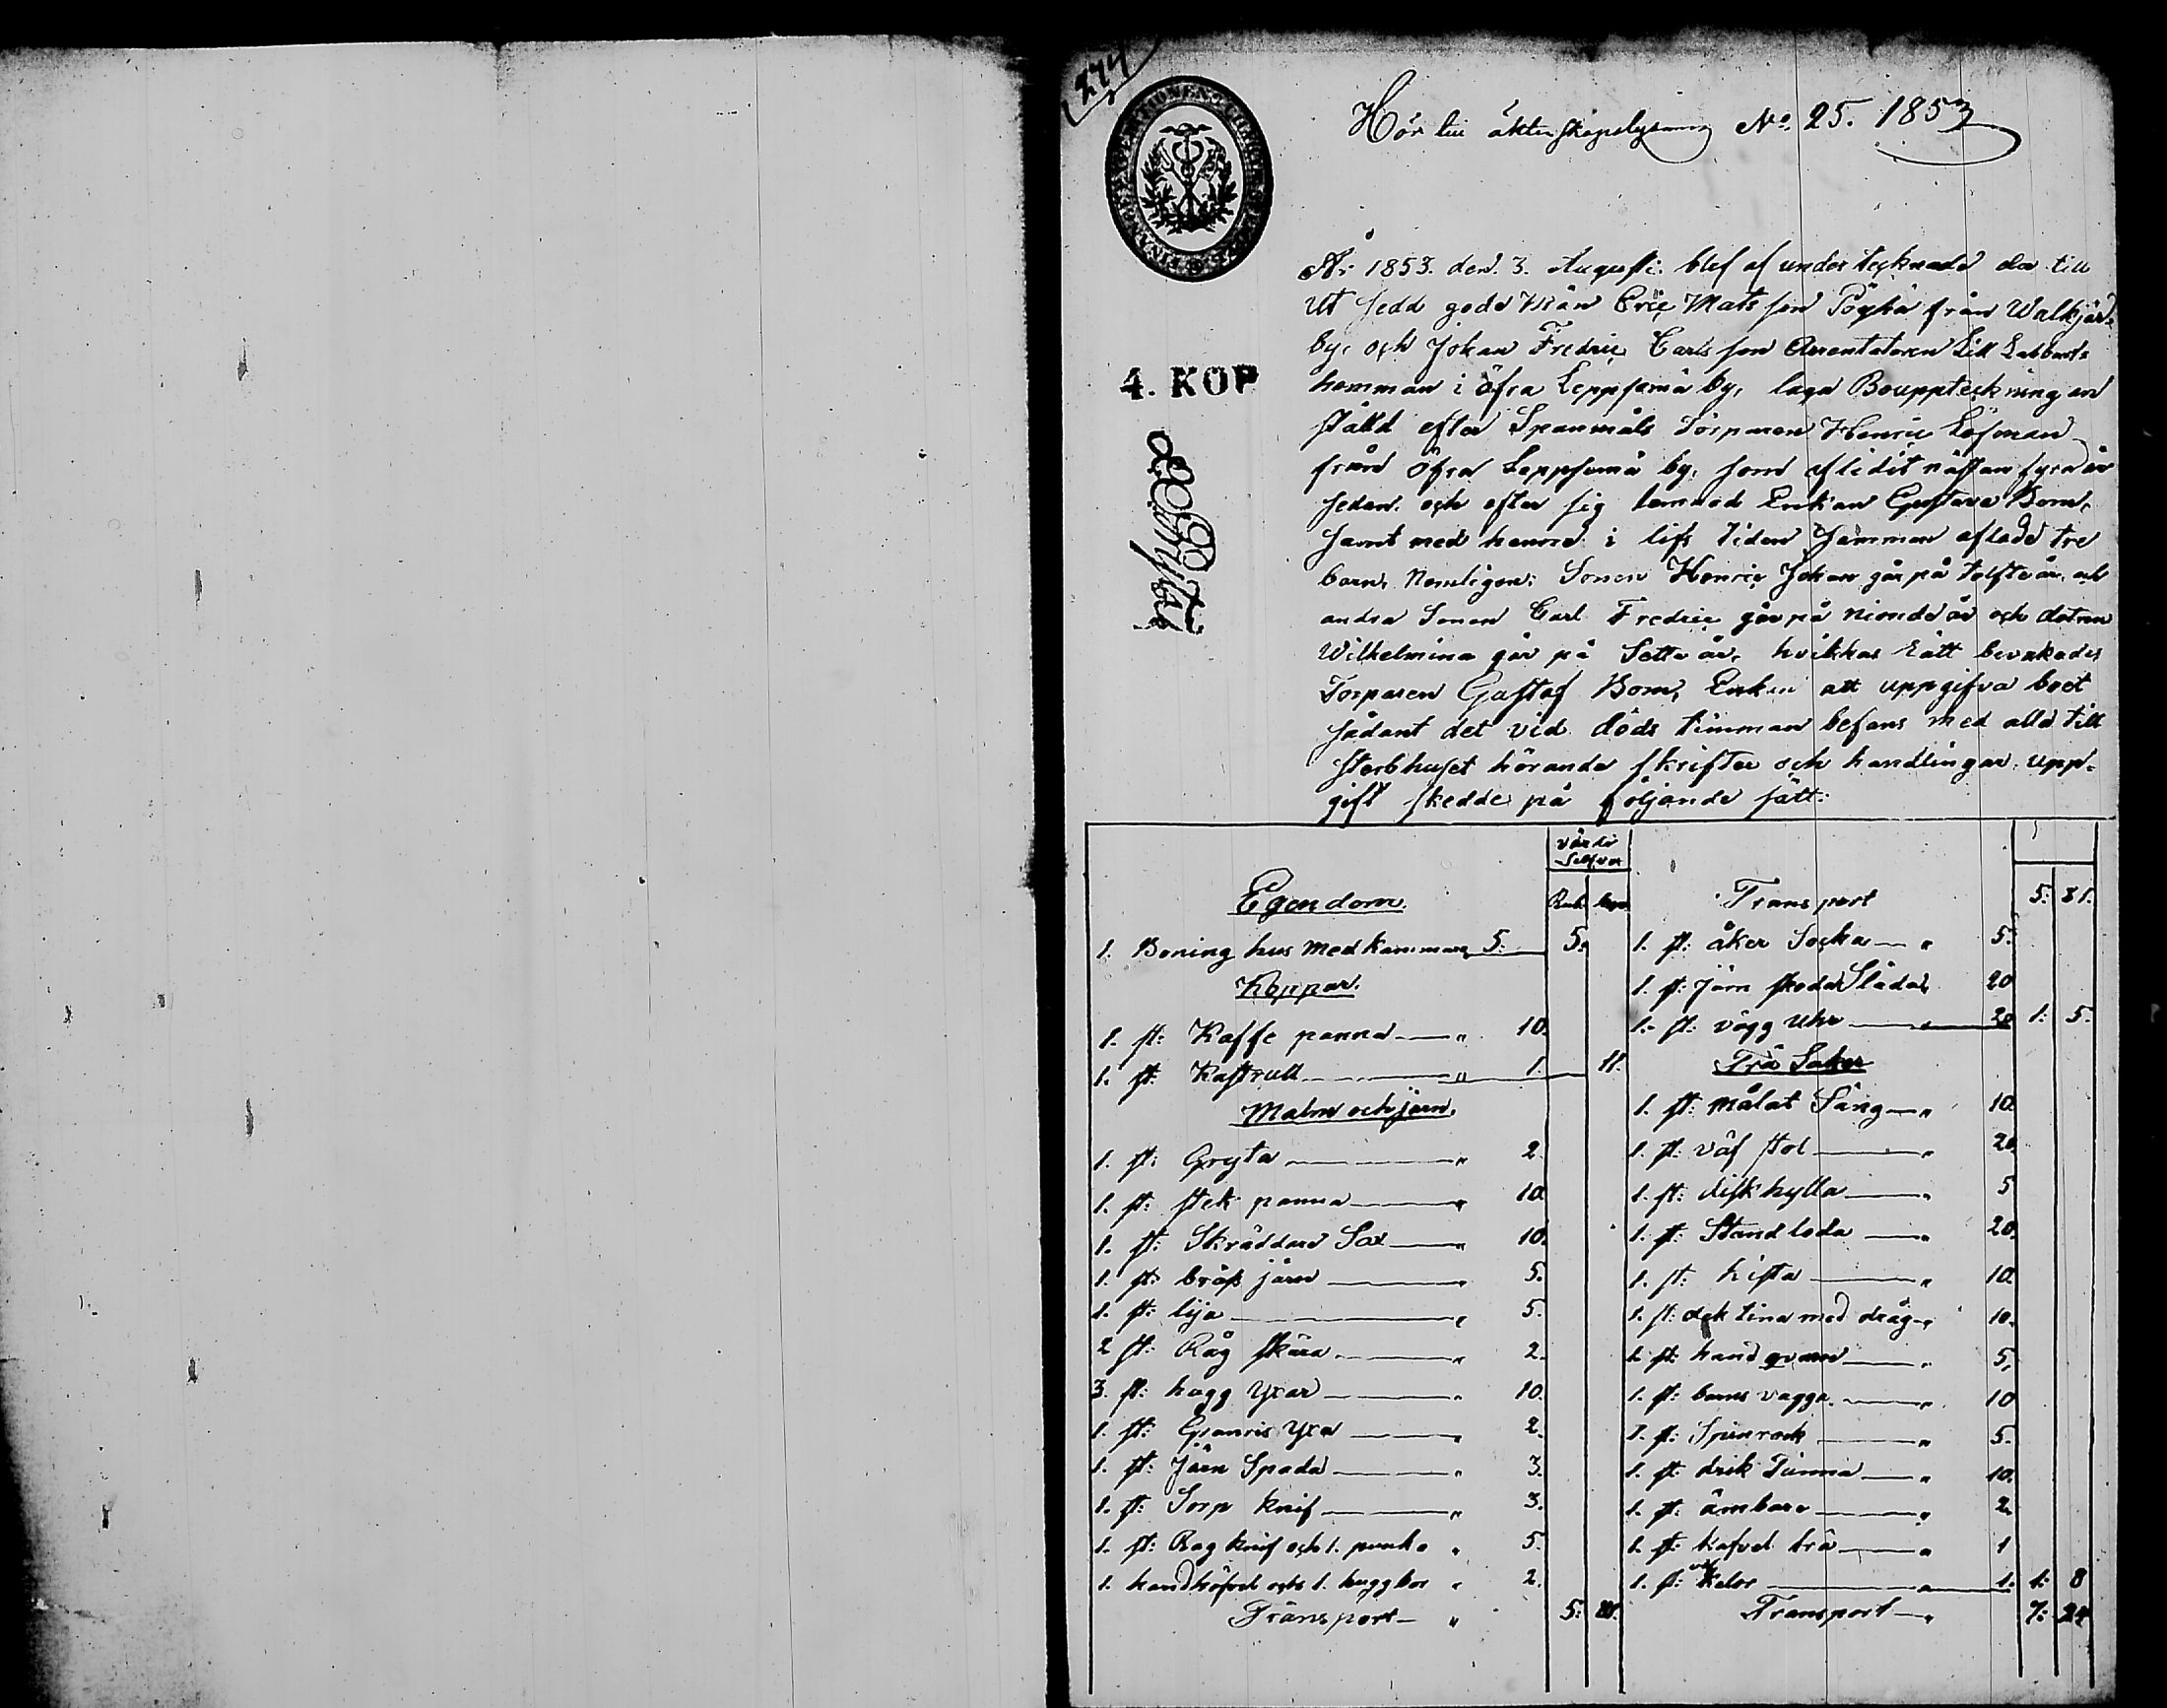 274
Hör till äktenskapslysning No. 25. 1853
År 1853. den. 3. Augusti. blef af undertecknade der till
Ut sedd gode Män Eric Mats son Pöyhä från Walkjär-
by. och Johan Fredric Carls son Arrentatoren Till Labbarts
4. KOP
hemman i öfra Leppsemä by, laga Bouppteckning an
ställd efter Spanmåls Torparen Henric Löfman
från öfra Leppsemä by. som aflidit nästan fyra år
sedan. och efter sig lemnad Enkan Gustava Bom,
samt med henne i lifs tiden samman aflade tre
barn, Nemligen: Sonen Henric Johan går på tolfte år. och
andra Sonen Carl Fredric går på nionde år och dotren
Wilhelmina går på Sette år, hvikkas Rätt bevakades
Torparen Gustaf Bom, Enkan att uppgifva boet
sådant det vid döds timman befans med alla till
sterbhuset hörande skrifter och handlingar. upp-
gift skedde på följande sätt:
värde
Silfver
Egendom. Rub. kop.
1. Boning hus med kammare 5. 5.
Koppar.
1. st: Kaffe panna " 10.
1. st: Kastrull " 1. 11.
Malm och järn.
1. st: Gryta " 2.
1. st: stek panna " 10.
1. st: Skräddare Sax " 10.
1. st: järn " 5.
1. st: lija " 5.
2 st: Råg skära " 2.
3. st: hugg Yxar " 10.
1. st: Granris Yxa " 2.
1. st: Järn Spada " 3.
1. st: Torp knif " 3.
1. st: Rag knif och 1. " 5.
1. handhöfvel och 1. hugg bor " 2.
Transport " 5: 81.
Transport 5: 81.
1. st: åker Socka " 5.
1. st: järn skodd Släda 20
1. st: vägg Uhr 20 1: 5.
Trä Saker
1. st: målat Säng " 10.
1. st: väf stol " 20
1. st: disk hylla " 5
1. st: Stand loda " 20.
1. st: kista " 10.
1. st: dek tina med dråg " 10.
1. st: hand qvarn " 5,
1. st: barns vagga " 10
1. st: Spinrock " 5.
1. st: drik Tunna " 10.
1. st: ämbare " 2.
1. st: kafvel trä " 1
1. st: " 1. 1: 8
Transport " 7: 24